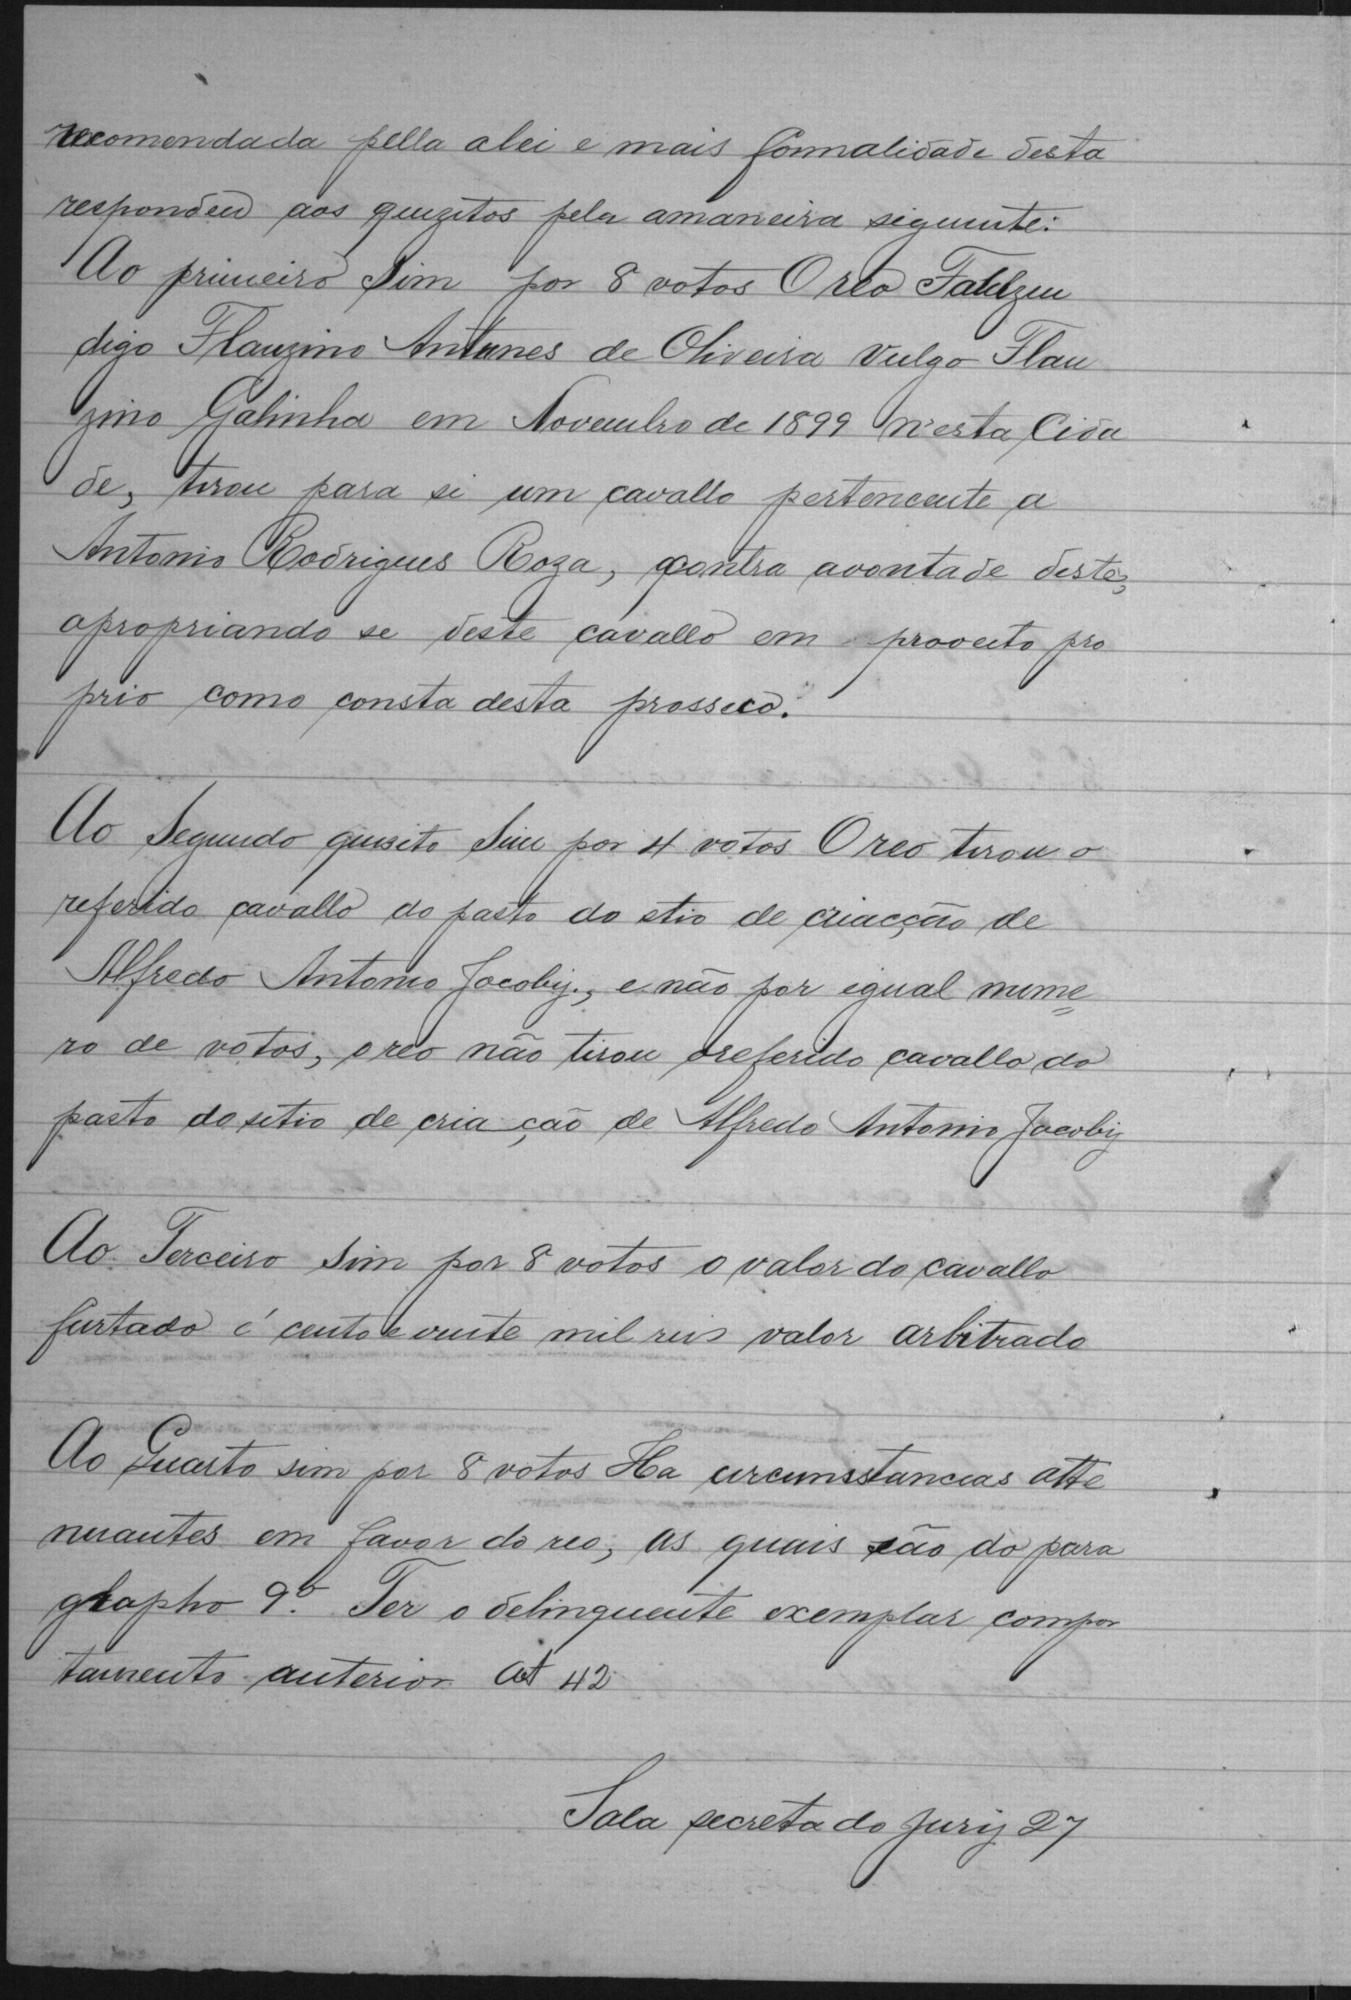 recomendada pella alei e mais formalidade desta
respondeu aos quezitos pela amaneira siguinte:
Ao primeiro Sim por 8 votos O reo
digo Flauzino Antunes de Oliveira Vulgo Flau
zino Galinha em Novembro de 1899 n'esta Cida
de, tirou para si um cavallo pertencente a
Antonio Rodrigues Roza, contra avontade deste,
apropriando se deste cavallo em proveito pro
prio como consta desta prosseco.
Ao Segundo quisito Sim por 4 votos O reo tirou o
referido cavallo do pasto do stio de criacção de
Alfredo Antonio Jacoby., e não por igual nume
ro de votos, o reo não tirou oreferido cavallo do
pasto do setio de cria ção de Alfredo Antonio Jacoby
Ao Terceiro Sim por 8 votos o valor do cavallo
furtado é cento e vinte mil reis valor arbitrado
Ao Quarto sim por 8 votos Ha circumsstancias atte
nuantes em favor do reo, as quais são do para
grapho 9º. Ter o delinquente exemplar compor
tamento anterior Art 42
Sala secreta do Jury 27